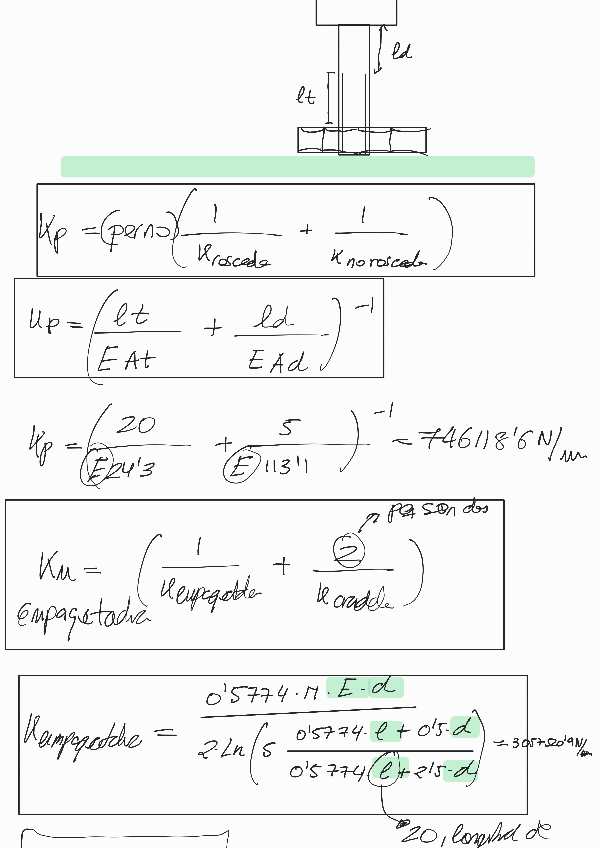 ld
lt
Kp = (perno) ( 1 / Kroscada + 1 / Kno roscada )
Kp = ( lt / E At + ld / E Ad )^-1
Kp = ( 20 / E 24'3 + 5 / E 113'1 )^-1 = 746118'6 N/m
→ pq son dos
Km = ( 1 / Kempaq + 2 / K )
Empaquetadura
0'5774·π·E·d
= / 2·Ln ( 5 0'5774·l + 0'5·d / 0'5774(l + 2'5·d ) = 3057520'9 N/m
20, longitud de